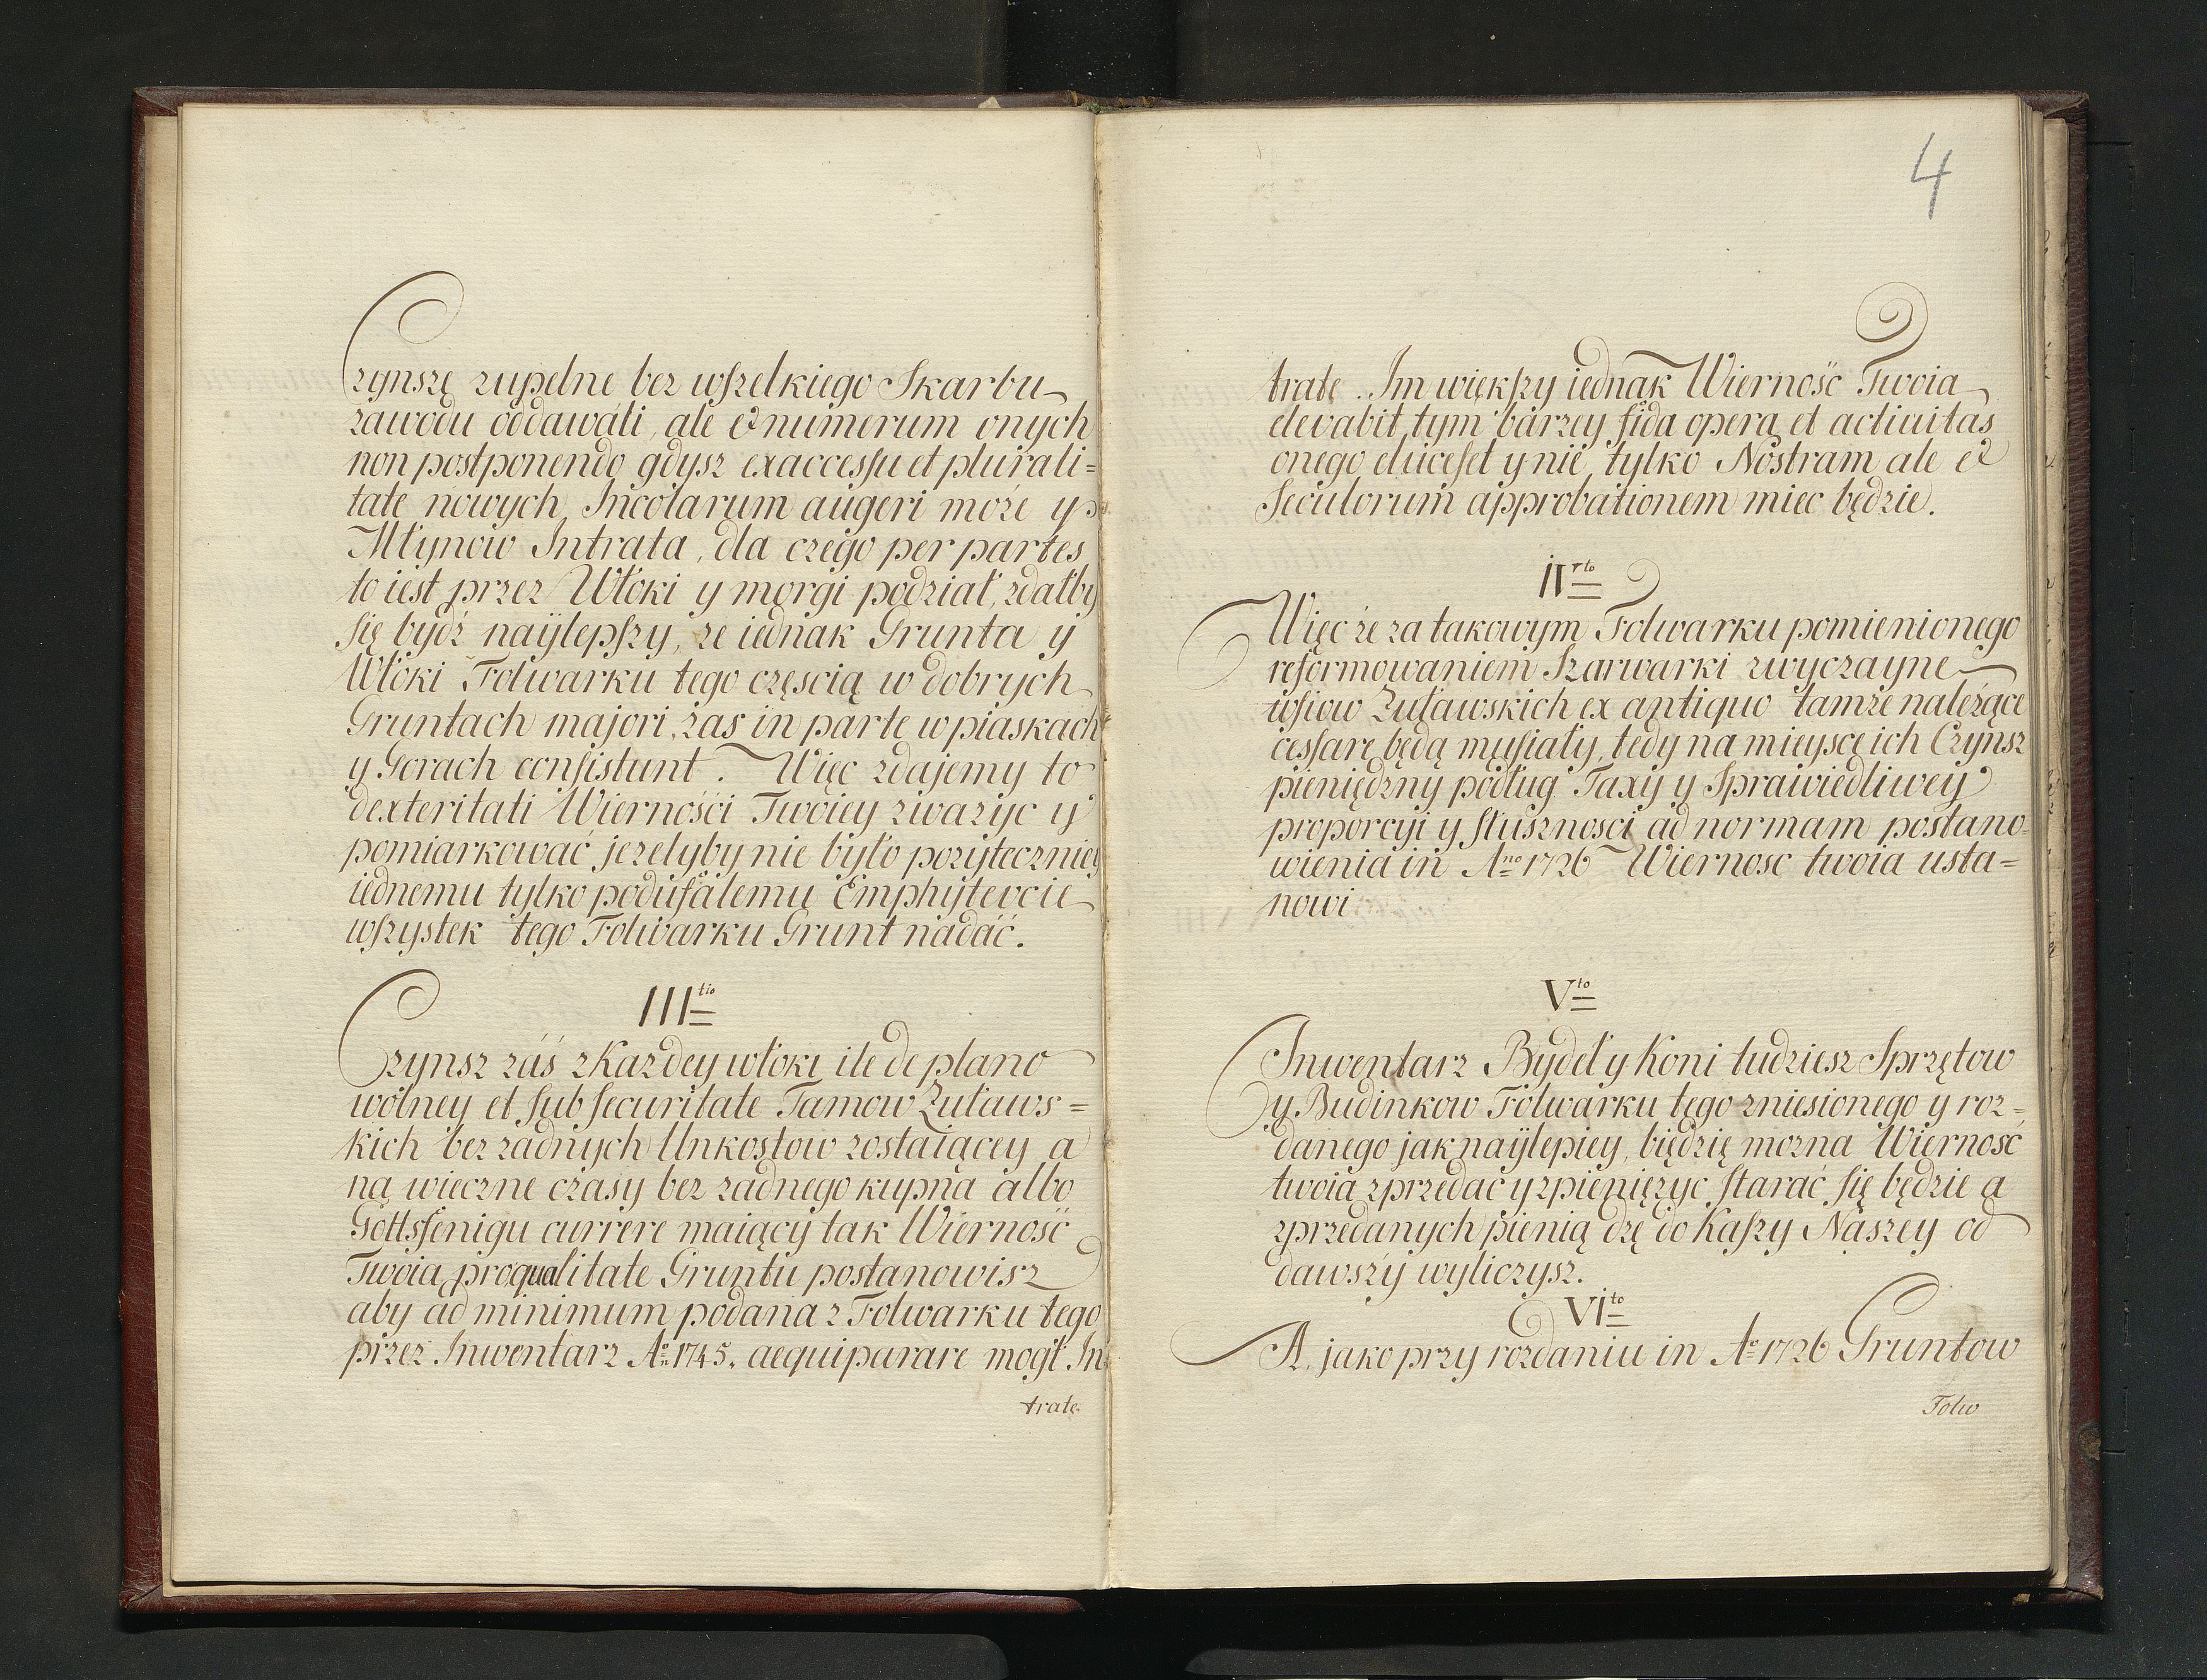 Czynszę zupełne bez wszelkiego Skarbu
zawodu oddawáli, ale & numerum onych
non postponendo gdysz exaccessu et plurali=
tate nowych Incolarum augeri może y
Młynow Intrata, dla czego per partes
to iest przez Włoki y morgi podział, zdałby
się bydź naÿlepszy, ze iednak Grunta ÿ
Włoki Folwarku tego częscią w dobrych
Gruntach majori, zas in parte w piaskach
y Gorach consistunt. Więc zdajemy to
dexteritati Wiernośći Twoiey zwazyc y
pomiarkować jezelyby nie było pozÿteczniey
iednemu tylko podufałemu Emphÿtevcie
wszystek tego Folwarku Grunt nadáć.
III tio
Czynsz záś z Kazdey włoki ile de plano
wolney et sub securitate Tamow Zuławs=
kich bez zadnych Unkostow zostaiącey a
na wieczne czasy bez zadnego kupna albo
Gottsfenigu currere maiący tak Wierność
Twoia pro qualitate Gruntu postanowisz
aby ad minimum podana z Folwarku tego
przez Inwentarz Ao 1745. aequiparare mogł In
tratę
4
tratę. Im większy iednak Wierność Twoia
elevabit, tym bárzey fida opera et activitas
onego eluceset y nie tylko Nostram ale &
Seculorum approbationem miec będzie.
IV rto
Więc że za takowym Folwarku pomienionego
reformowaniem Szarwarki zwyczayne
wsiow Zuławskich ex antiquo tamże należące
cessare będą musiały, tedy na mieysce ich Czynsz
pieniędzny podług Taxy y Sprawiedliwey
proporcyi y słusznosci ad normam postano=
wienia in Ano 1726 Wiernosc twoia usta=
nowi
V to
Inwentarz Bydeł y Koni tudziesz Sprzętow
y Budinkow Folwarku tego zniesionego y roz=
danego jak naÿlepiey, będzię mozna Wierność
twoia zprzedać y zpieniężyc starać się będzie a
zprzedanych pienią dzę do Kaszy Naszey od
dawszÿ wyliczysz.
VI to
A jako przy rozdaniu in Ao 1726 Gruntow
Folw